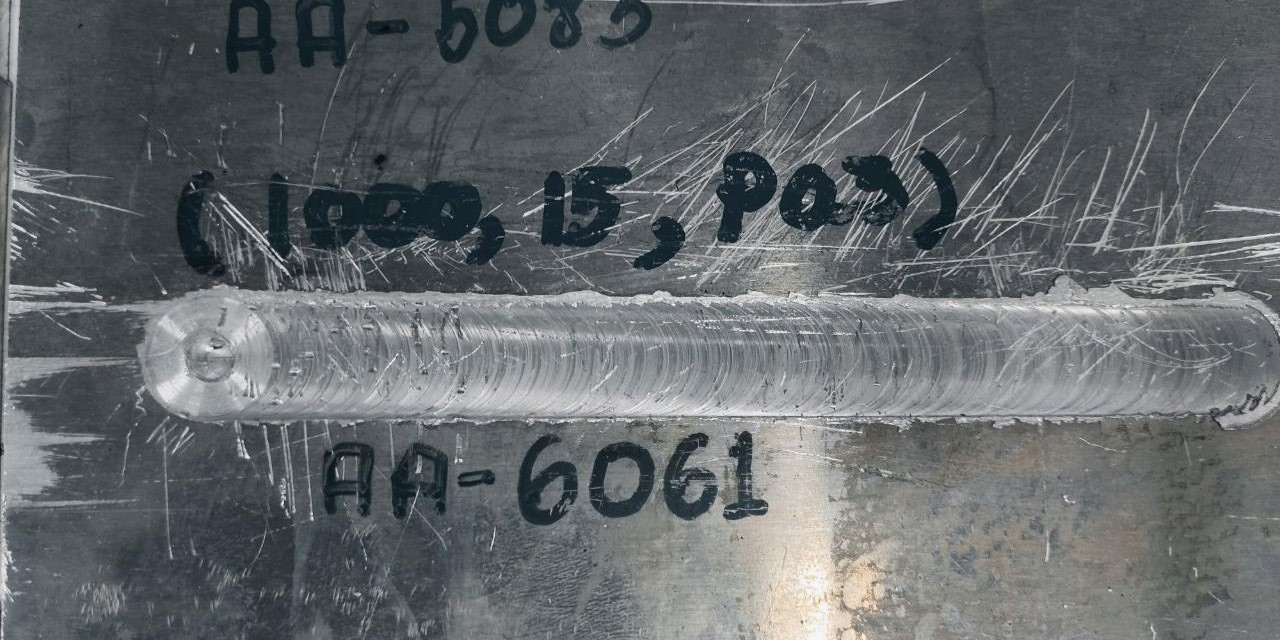 AA-5083
(1000, 15, Pos)
AA-6061